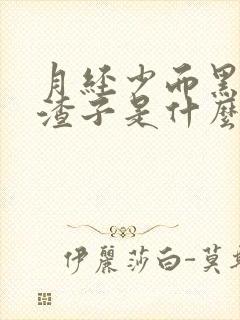 月經少而黑
渣子是什麼
伊麗莎白-莫